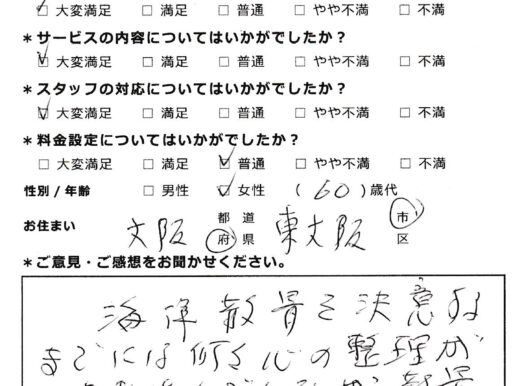 ☑ 大変満足 □ 満足 □ 普通 □ やや不満 □ 不満
＊サービスの内容についてはいかがでしたか？
☑ 大変満足 □ 満足 □ 普通 □ やや不満 □ 不満
＊スタッフの対応についてはいかがでしたか？
☑ 大変満足 □ 満足 □ 普通 □ やや不満 □ 不満
＊料金設定についてはいかがでしたか？
□ 大変満足 □ 満足 ☑ 普通 □ やや不満 □ 不満
性別 / 年齢 □ 男性 ☑ 女性 ( 60 ) 歳代
お住まい 大阪 都 道 府 県 東大阪 市 区
＊ご意見・ご感想をお聞かせください。
海洋散骨を決意する
までには何も心の整理が